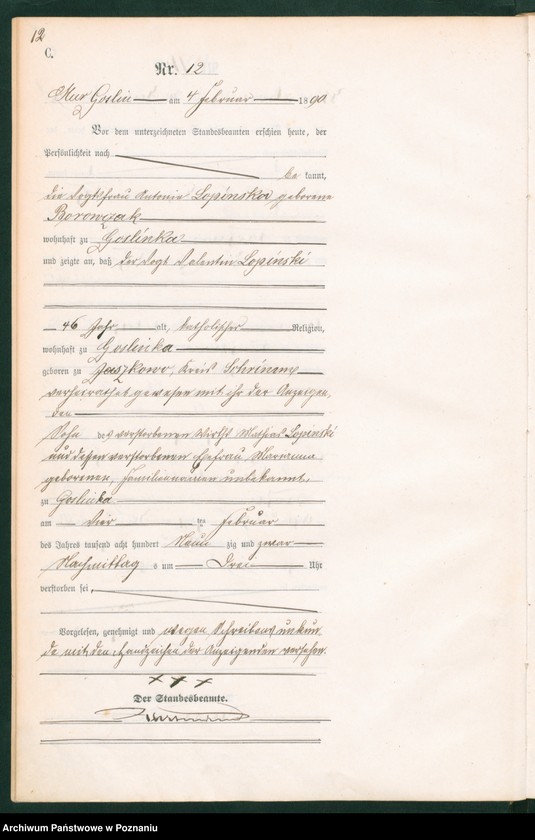 12
C.
Nr. 12
Mur Goslin am 4 Februar 1890
Vor dem unterzeichneten Standesbeamten erschien heute, der
Persönlichkeit nach
be kannt,
die Vogtsfrau Antonie Lopinska geborene
Borowczak
wohnhaft zu Goslinka
und zeigte an, daß der Vogt Valentin Lopinski
46 Jahr alt, katholischer Religion,
wohnhaft zu Goslinka
geboren zu Jaszkowo, Kreis Schrimm,
verheirathet gewesen mit ihr der Anzeigen
den
Sohn des verstorbenen Wirths Mathias Lopinski
und dessen verstorbenen Ehefrau Marianna
geborenen, Familiennamen unbekannt,
zu Goslinka
am Vier ten Februar
des Jahres tausend acht hundert Neun zig und zwar
Nachmittag s um Drei Uhr
verstorben sei,
Vorgelesen, genehmigt und wegen Schreibens unkun
de mit den Handzeichen der Anzeigenden versehen.
xxx
Der Standesbeamte.
Archiwum Państwowe w Poznaniu